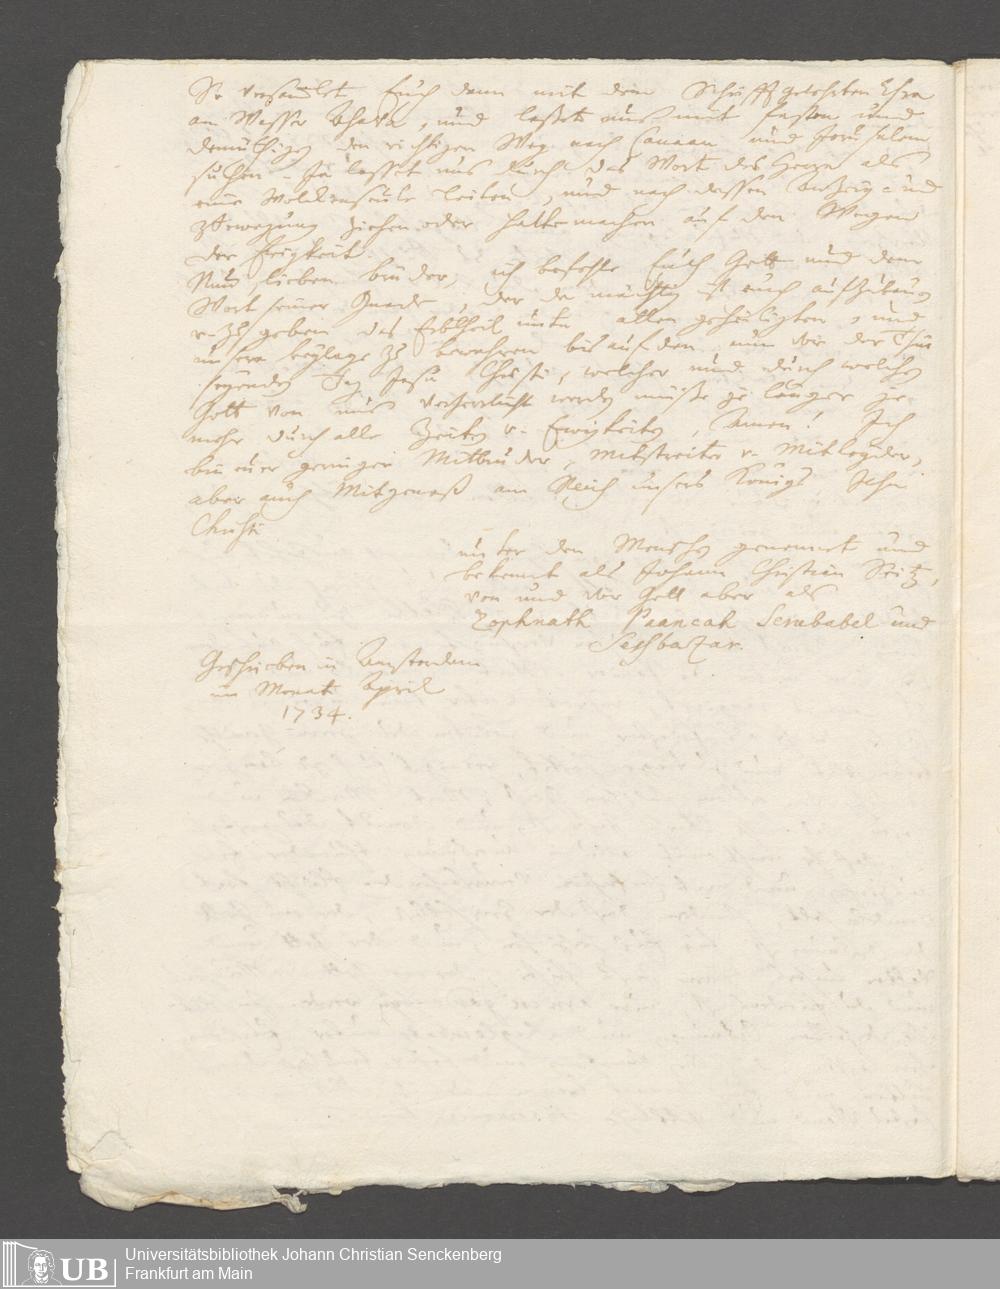 So versamlet Euch dann mit dem Schrifftgelehrten Esra
am Wasser Ahava, und lasset uns mit fasten und
demüthigen den richtigen Weg nach Canaan und Jerusalem
suchen. Ja lasset uns durch das Wort des Herrn als
eine Wolckenseule leiten, und nach dessen Anzeig und
Bewegung ziehen oder halte machen auf den Wegen
der Ewigkeit.
Nun lieben brüder, ich befehle Euch Gott und dem
Wort seiner Gnade, der da mächtig ist euch aufzubauen
u. zu geben das Erbtheil unter allen geheiligten, und
unsere beylage zu bewahren bis auf den nun vor der Thür
seyenden Tag Jesu Christi, welcher und durch welchen
Gott von uns verherrlicht werden müsse je länger je
mehr durch alle Zeiten u. Ewigkeiten, Amen! Ich
bin euer geringer Mitbruder, Mitstreiter u. Mitleyder,
aber auch Mitgenoß am Reich unsers Königs Jesu
Christi
unter den Menschen genennet und
bekennt als Johann Christian Seitz,
von und vor Gott aber als
Zophnath Paaneah Serubabel und
Sesbazar.
Geschrieben in Amsterdam
im Monat April
1734.
UB
Universitätsbibliothek Johann Christian Senckenberg
Frankfurt am Main